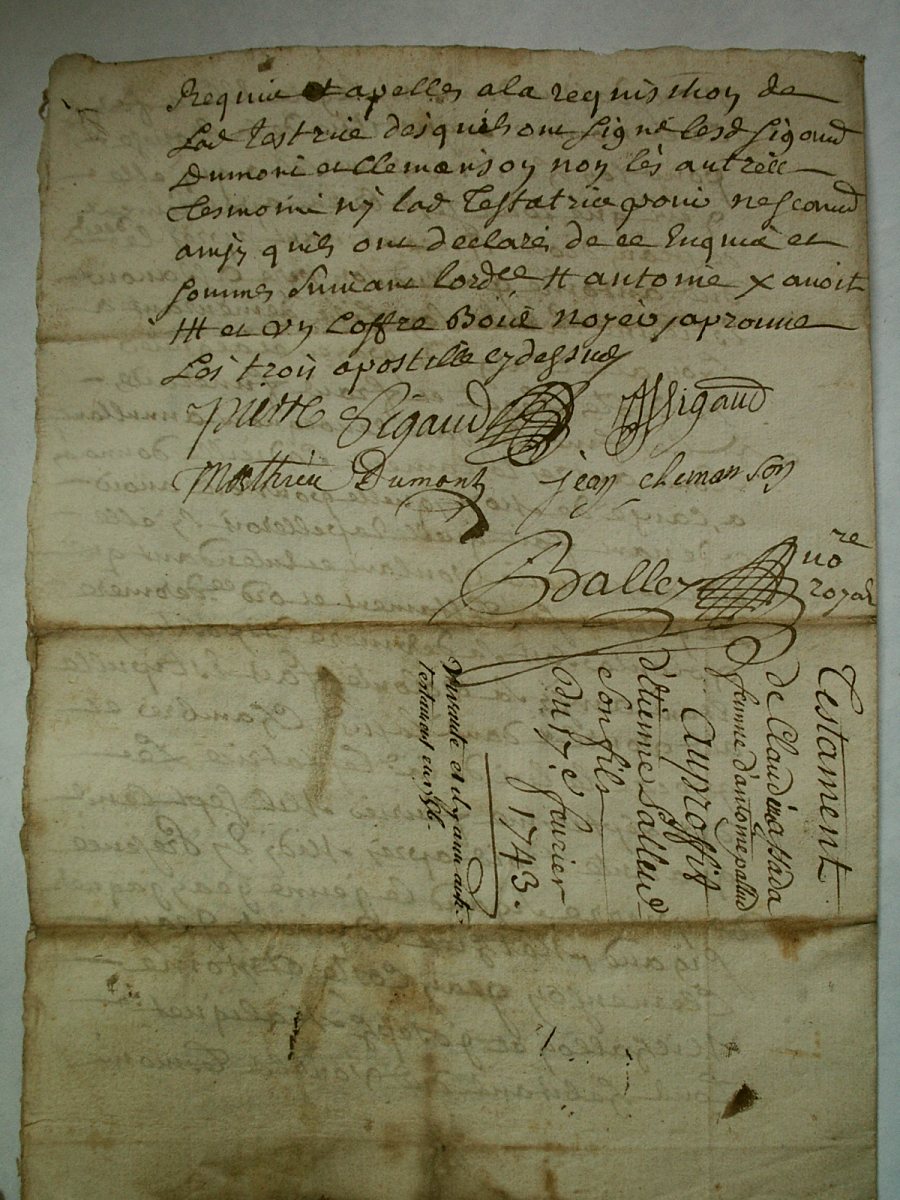 Requis et apelles a la requisition de
Lad testrice desquels ont signé lesd Sigaud
Dumont et Clemanson non les autres
Tesmoins ny lad Testatrice pour ne scavoir
ainsy quils ont declaré de ce Enquis et
sommes suivant lord.ce # antoine x avoit
et un Coffre Bois noyer, aprouve
Les trois apostille cy dessus
pierre Sigaud Sigaud
Mathieu Dumont jean clemanson
Balley no.re
royal
Testament
de Claudine
femme d'antoine palud
Au proffit
d'Etienne
son fils
du 17.e fevrier
1743.
et il y a un aut.
testament